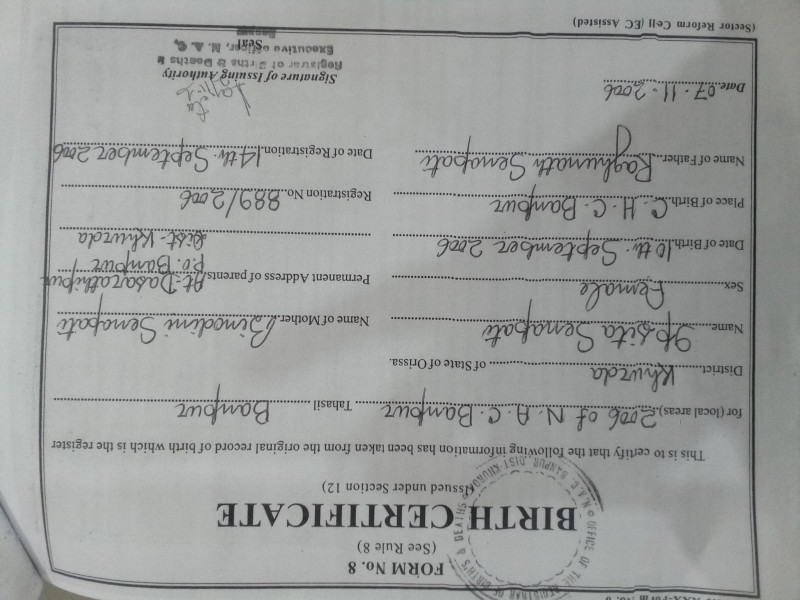 FORM No. 8
(See Rule 8)
BIRTH CERTIFICATE
(Issued under Section 12)
OFFICE OF THE REGISTRAR OF BIRTH'S & DEATHS
N.A.C. BANPUR, DIST-KHURDA
This is to certify that the following information has been taken from the original record of birth which is the register
for (local areas) 2006 of N.A.C. Banpur Tahasil Banpur
District Khurda of State of Orissa.
Name Ipsita Senapati
Name of Mother Binodini Senapati
Sex Female
Permanent Address of parents At-Dasarathipur
P.O. Banpur
Dist-Khurda
Date of Birth 10th September 2006
Place of Birth C.H.C. Banpur
Registration No. 889/2006
Name of Father Raghunath Senapati
Date of Registration 14th September 2006
Date 07-11-2006
Signature of Issuing Authority
Registrar of Births & Deaths &
Executive officer, N.A.C,
Seal
Banpur
(Sector Reform Cell (EC Assisted)